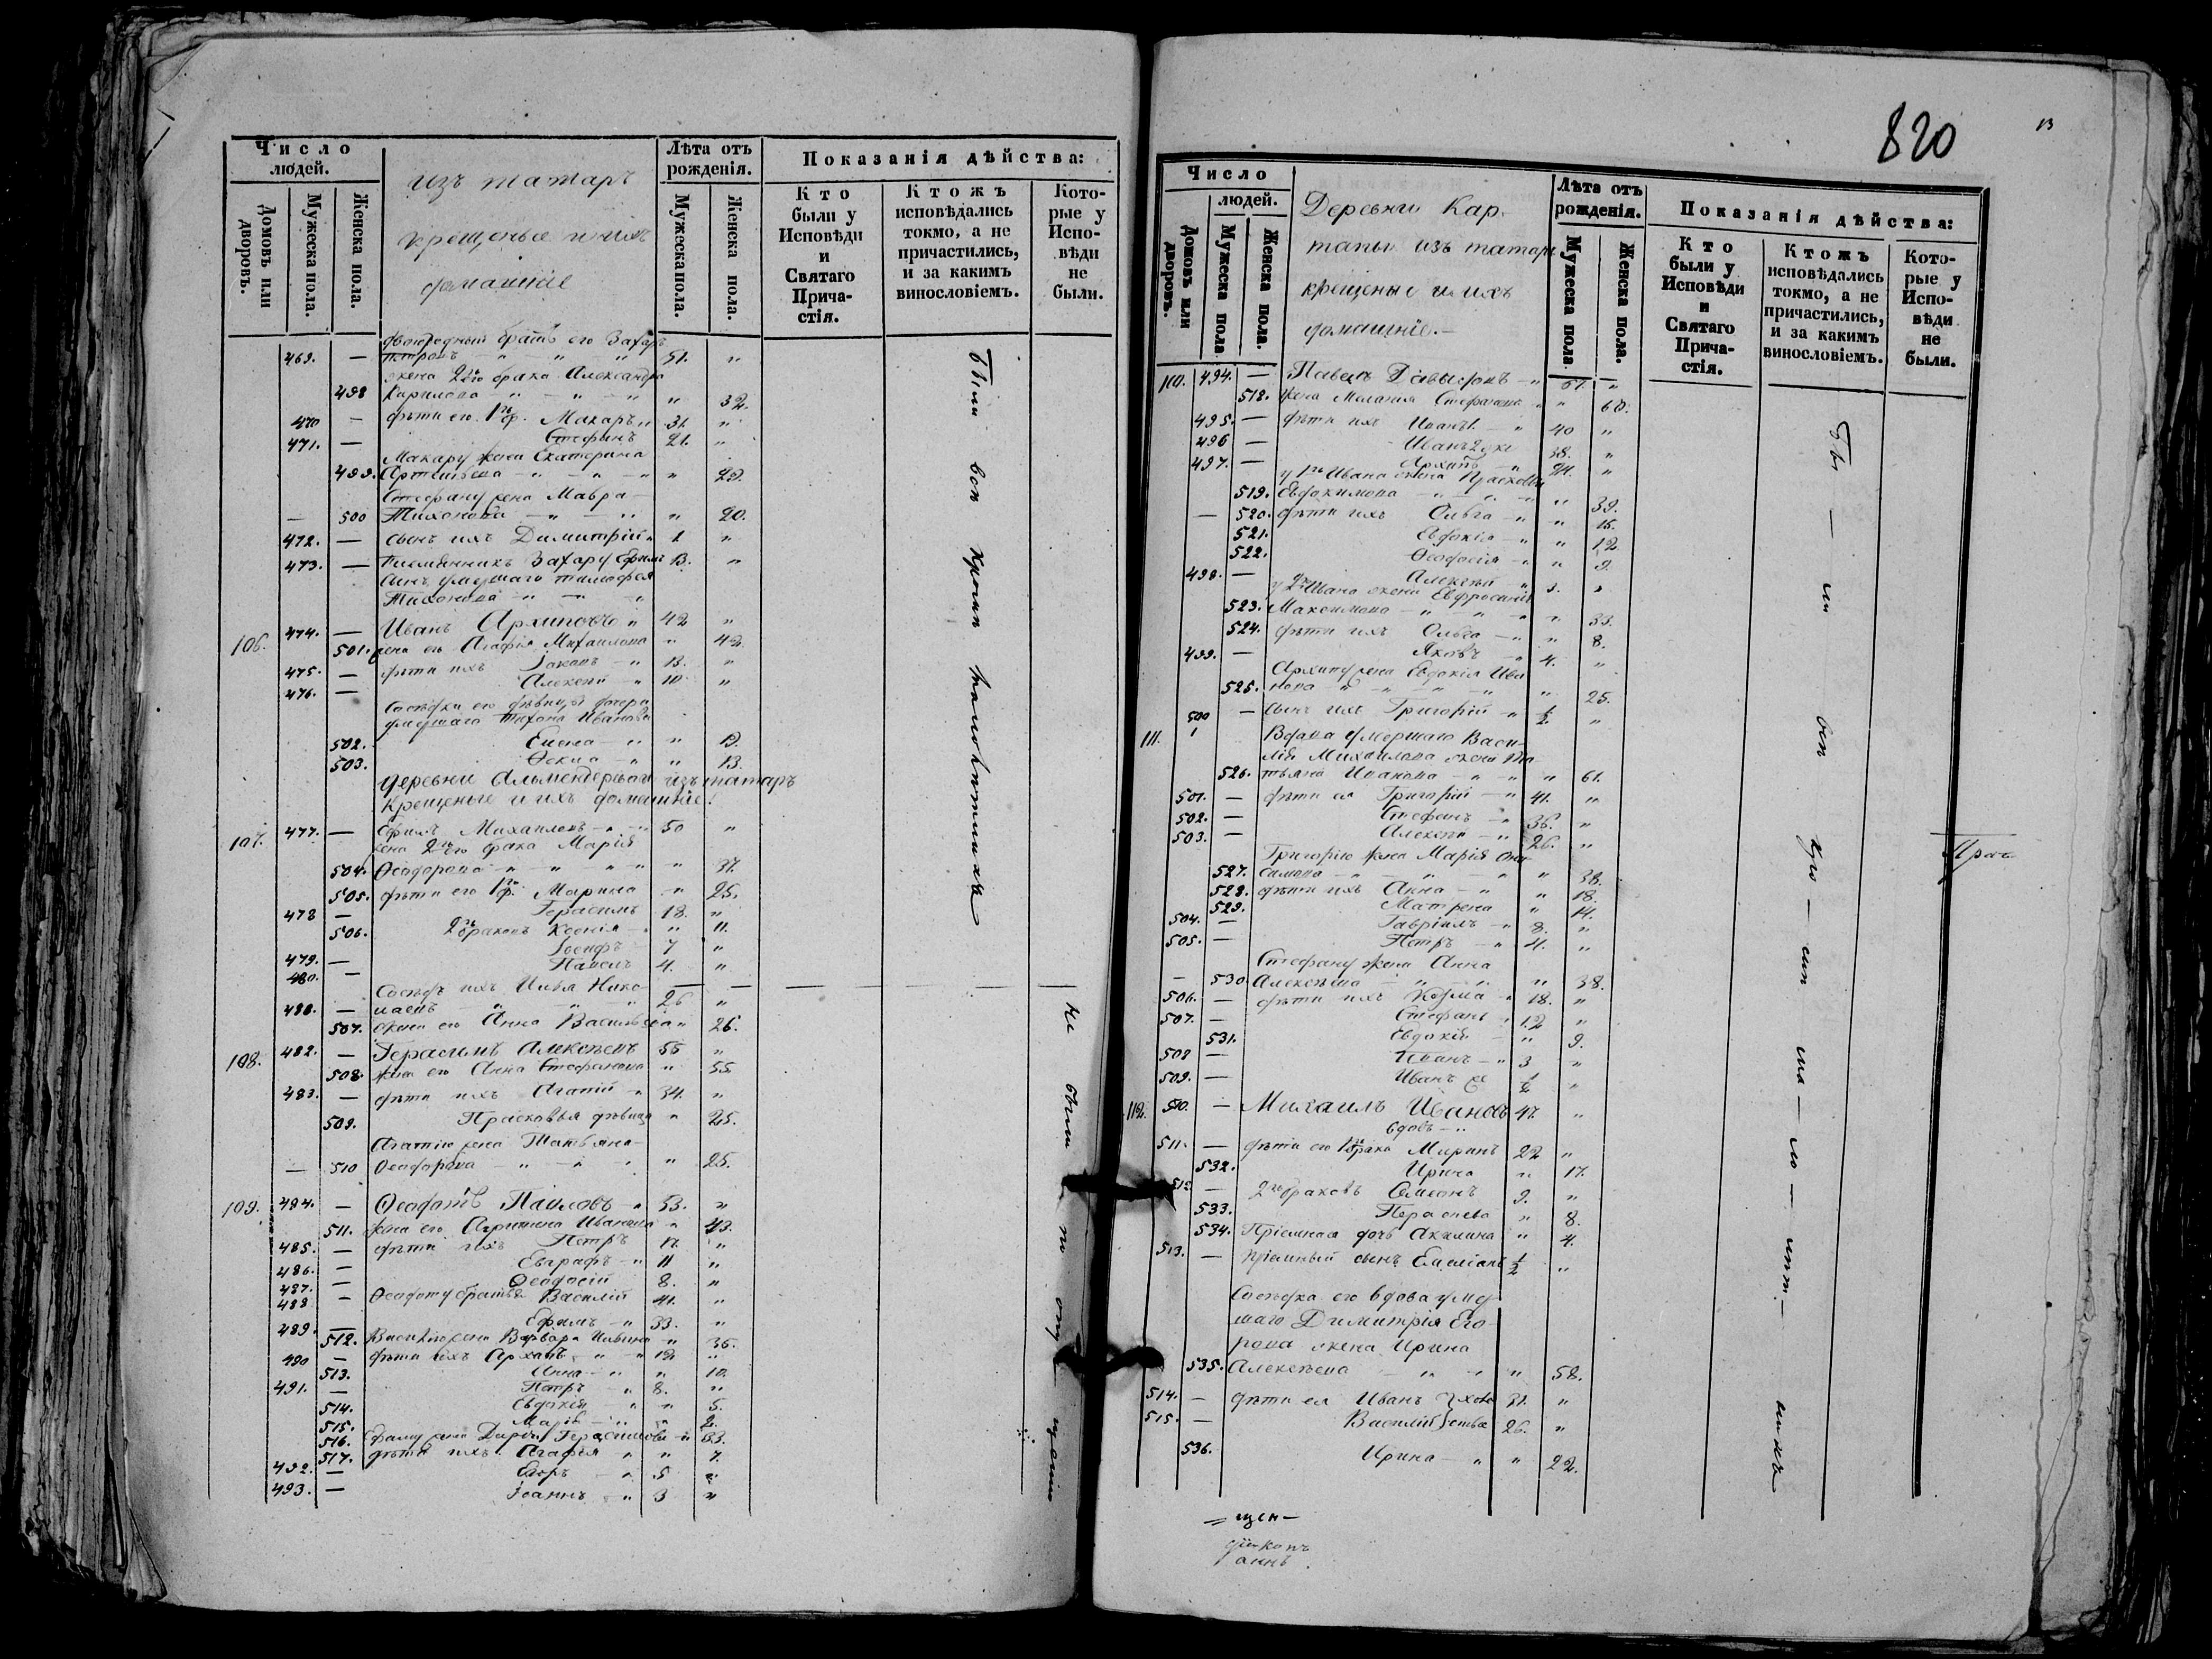 Число
людей.
Домовъ или дворовъ.
Мужеска пола.
Женска пола.
изъ татаръ
крещеные и ихъ
домашніе
Лѣта отъ
рожденія.
Мужеска пола.
Женска пола.
Показанія дѣйства:
Кто
были у
Исповѣди
и
Святаго
Прича-
стія.
Ктожъ
исповѣдались
токмо, а не
причастились,
и за какимъ
винословіемъ.
Кото-
рые у
Испо-
вѣди
не
были.
двоюродный братъ его Захаръ
469. — 51. "
жена 2го его брака Александра
498 Кирилова " — " — " " 32.
470 — дѣти его 1го бр. Макаръ " 31. "
471. — Стефанъ 21. "
Макару жена Екатерина
499. Артемьева — " — " — " " 29.
Стефану жена Мавра —
— 500 Тихонова — " — " " 20.
472. — сынъ ихъ Димитрій " 1 "
473. — Племянникъ Захару Ефимъ 13. "
сынъ умершаго Тимофея
Тихонова " — "
106. 474. — Иванъ Архиповъ " 42 "
501. жена его Агафія Михаилова " 42.
475. — дѣти ихъ Іаковъ — " 13. "
476. — Алексѣй — " 10 "
Сосѣдки его дѣвицы дочери
умершаго Тихона Иванова
502. Елена — " " 19.
503. Ѳекла — " " 13.
деревни изъ татаръ
крещеные и ихъ домашніе:
107. 477. — Ефимъ Михаиловъ — " — " 50 "
жена 2го его брака Марія
504. Ѳеодорова — " " " " " 37.
505. дѣти его 1го бр. Марина " 25.
478 — Герасимъ 18. "
506. 2го браковъ Ксенія — " " 11.
479. — Іосифъ 7 "
480. — Павелъ 4. "
Сосѣдъ ихъ Илья Нико-
480. — лаевъ — " — " 26 "
507. жена его Анна Васильева " 26.
108. 482. — Герасимъ Алексѣевъ 55 "
508. жена его Анна Стефанова " 55.
483. — дѣти ихъ Агапій " 34. "
509. Прасковья дѣвица " 25.
Агапію жена Татьяна
— 510 Ѳеодорова — " — " " " 25.
109. 484. — Ѳеодотъ Павловъ " 53. "
511. жена его Агрипина Иванова " 43.
485. — дѣти ихъ Петръ 17. "
486. — Евграфъ — " 11 "
487. — Ѳеодосій 8. "
488 — Ѳеодоту братья Василій 41. "
489. — Ефимъ — " 33. "
512. Василію жена Варвара Ильина " 36.
490 — дѣти ихъ Архипъ " " 12 "
513. Анна — " " 10.
491. — Петръ — " 8. "
514. Евдокія " " 5.
515. Марія — " " 2.
516. Ефиму жена Дарія Герасимова — " 33.
517. дѣти ихъ Агафія " " 7.
492. — Егоръ — " 5 "
493. — Іоаннъ " 3 "
Были всѣ кромѣ малолѣтнихъ
не были по опущенію
820
13
Число
людей.
Домовъ или дворовъ.
Мужеска пола
Женска пола.
Деревни Кар-
тапы изъ татаръ
крещеные и ихъ
домашніе.—
Лѣта отъ
рожденія.
Мужеска пола
Женска пола.
Показанія дѣйства:
Кто
были у
Исповѣди
и
Святаго
Прича-
стія.
Ктожъ
исповѣдались
токмо, а не
причастились,
и за какимъ
винословіемъ.
Кото-
рые у
Испо-
вѣди
не
были.
110. 494. — Павелъ Давыдовъ — " 67. "
518. жена Маланія Стефанова " " 60.
495. — дѣти ихъ Иванъ 1. — " 40 "
496 — Иванъ 2 же 38. "
497. — Архипъ — " 24. "
у 1го Ивана жена Прасковья
519. Евдокимова — " — " — " " 39.
— 520. дѣти ихъ Ольга — " " 15.
521. Евдокія — " " 12
522. Ѳеодосія — " " 9.
498. — Алексѣй " 3. "
у 2го Ивана жена Евфросинія
523. Максимова — " — " " 33.
524. дѣти ихъ Ольга — " " 8.
499. — Яковъ — " 4. "
Архипу жена Евдокія Ива
525. нова — " — " — " " 25.
500 — сынъ ихъ Григорій — " ½ "
111. Вдова умершаго Васи-
лія Михаилова жена Та
526. тьяна Иванова — " — " " 61.
501. — дѣти ея Григорій — " 41. "
502. — Стефанъ — " 36. "
503. — Алексѣй — " 26. "
Григорію жена Марія Они
527. симова — " — " — " " 38.
528. дѣти ихъ Анна — " " 18.
529. Матрена " 14.
504. — Гавріилъ — " 8. "
505. — Петръ — " 4. "
Стефану жена Анна
— 530. Алексѣева — " — " " 38.
506. — дѣти ихъ Козма " 18. "
507. — Стефанъ " 12 "
531. Евдокія — " 9.
508 — Иванъ — " 3 "
509. — Иванъ же ½ "
112. 510. — Михаилъ Ивановъ 47. "
вдовъ — "
511. — дѣти его 1го брака Миринъ 22 "
532. Ирина " 17.
512 — 2го браковъ Симеонъ 9. "
533. " 8.
534. Пріемная дочь Акилина " 4.
513. — Пріемный сынъ Емеліанъ ½ "
Сосѣдка его вдова умер
шаго Димитрія Его-
рова жена Ирина
535. Алексѣева " " " 58.
514. — дѣти ея Иванъ 31. "
515. — Василій 26. "
536. Ирина — " " 22.
Бы — ли всѣ кро — мѣ ма — ло — лѣт — нихъ